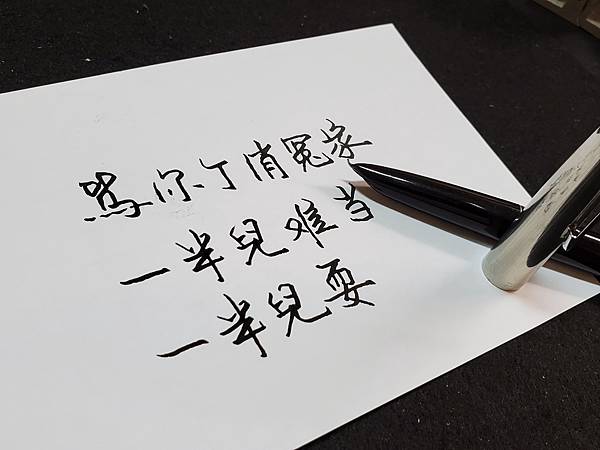 駡你亇俏冤家
一半兒难当
一半兒耍